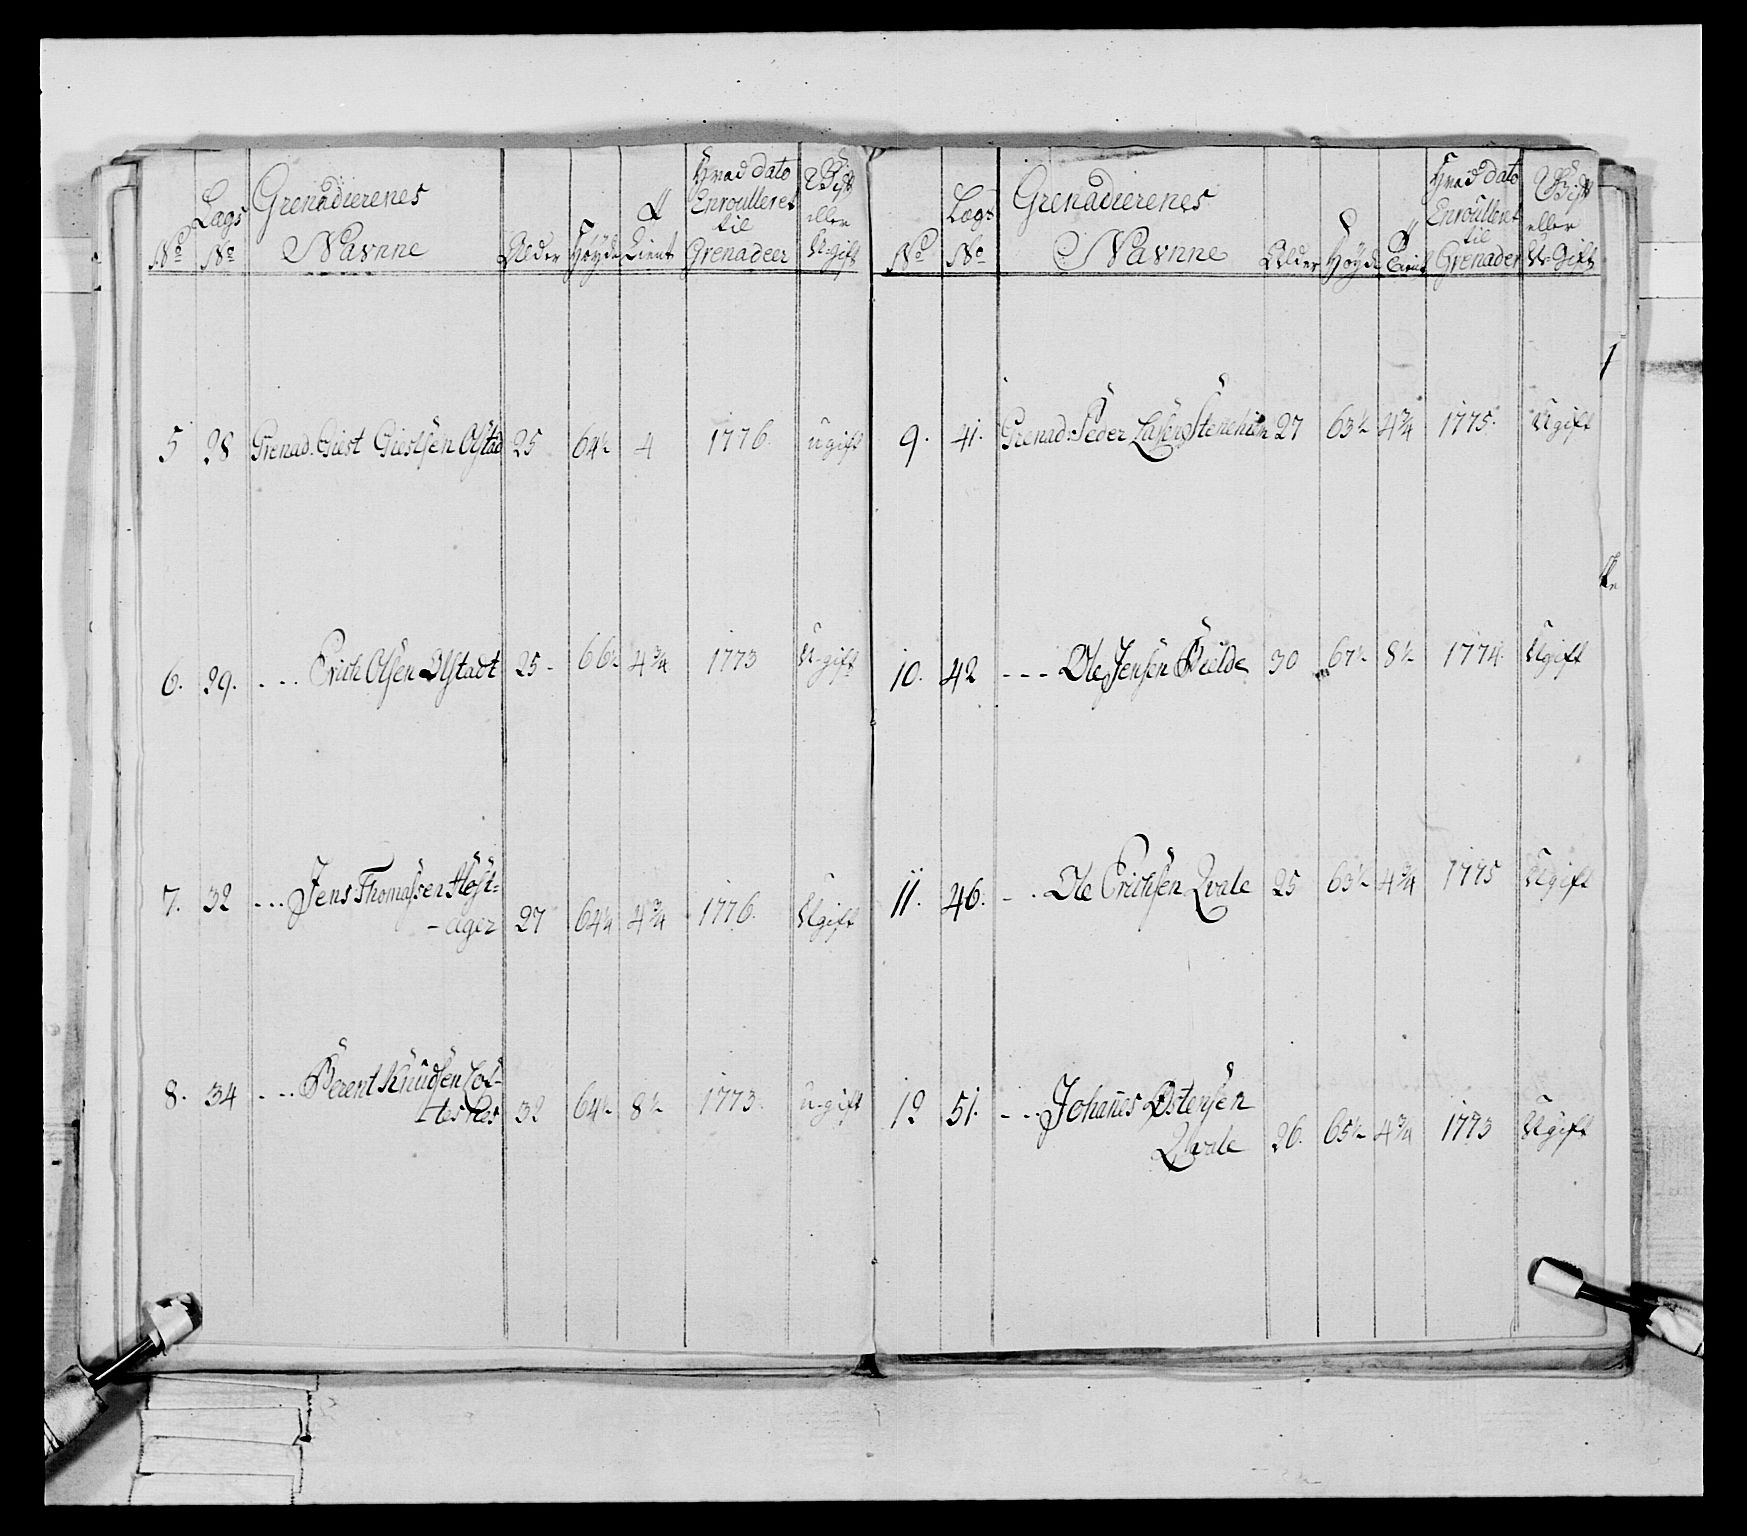 No Lags No Grenadierenes Navnne Alder Høyde Tient Hvad dato Enroulleret til Grenadeer Gift eller U-gift
5 28 Grenad. Giest Giestsen Olstad 25 64½ 4 1776. ugift
6. 29. - - - Erich Olsen Olstadt 25 - 66½ 4¾ 1773 U-gift
7. 32 - - - Jens Thomassen Høst=
- ager 27 64¼ 4¾ 1776. Ugift
8. 34 - - - Berent Knudsen
32 64½ 8½ 1773. U-gift
No Lags No Grenadierenes Navnne Alder Høyde Tient Hvad dato Enroulleret til Grenader Gift eller U-Gift
9. 41. Grenad: Peder Larsen 27 63½ 4¾ 1775. Ugift
10. 42 - - - Ole Jensen Kielde 30 67½ 8½ 1774. Ugift
11. 46. - - Ole Erichsen Qvale 25 63½ 4¾ 1775 Ugift
12 51. - - - Johañes Østensen
Qvale 26. 65½ 4¾ 1773 Ugift